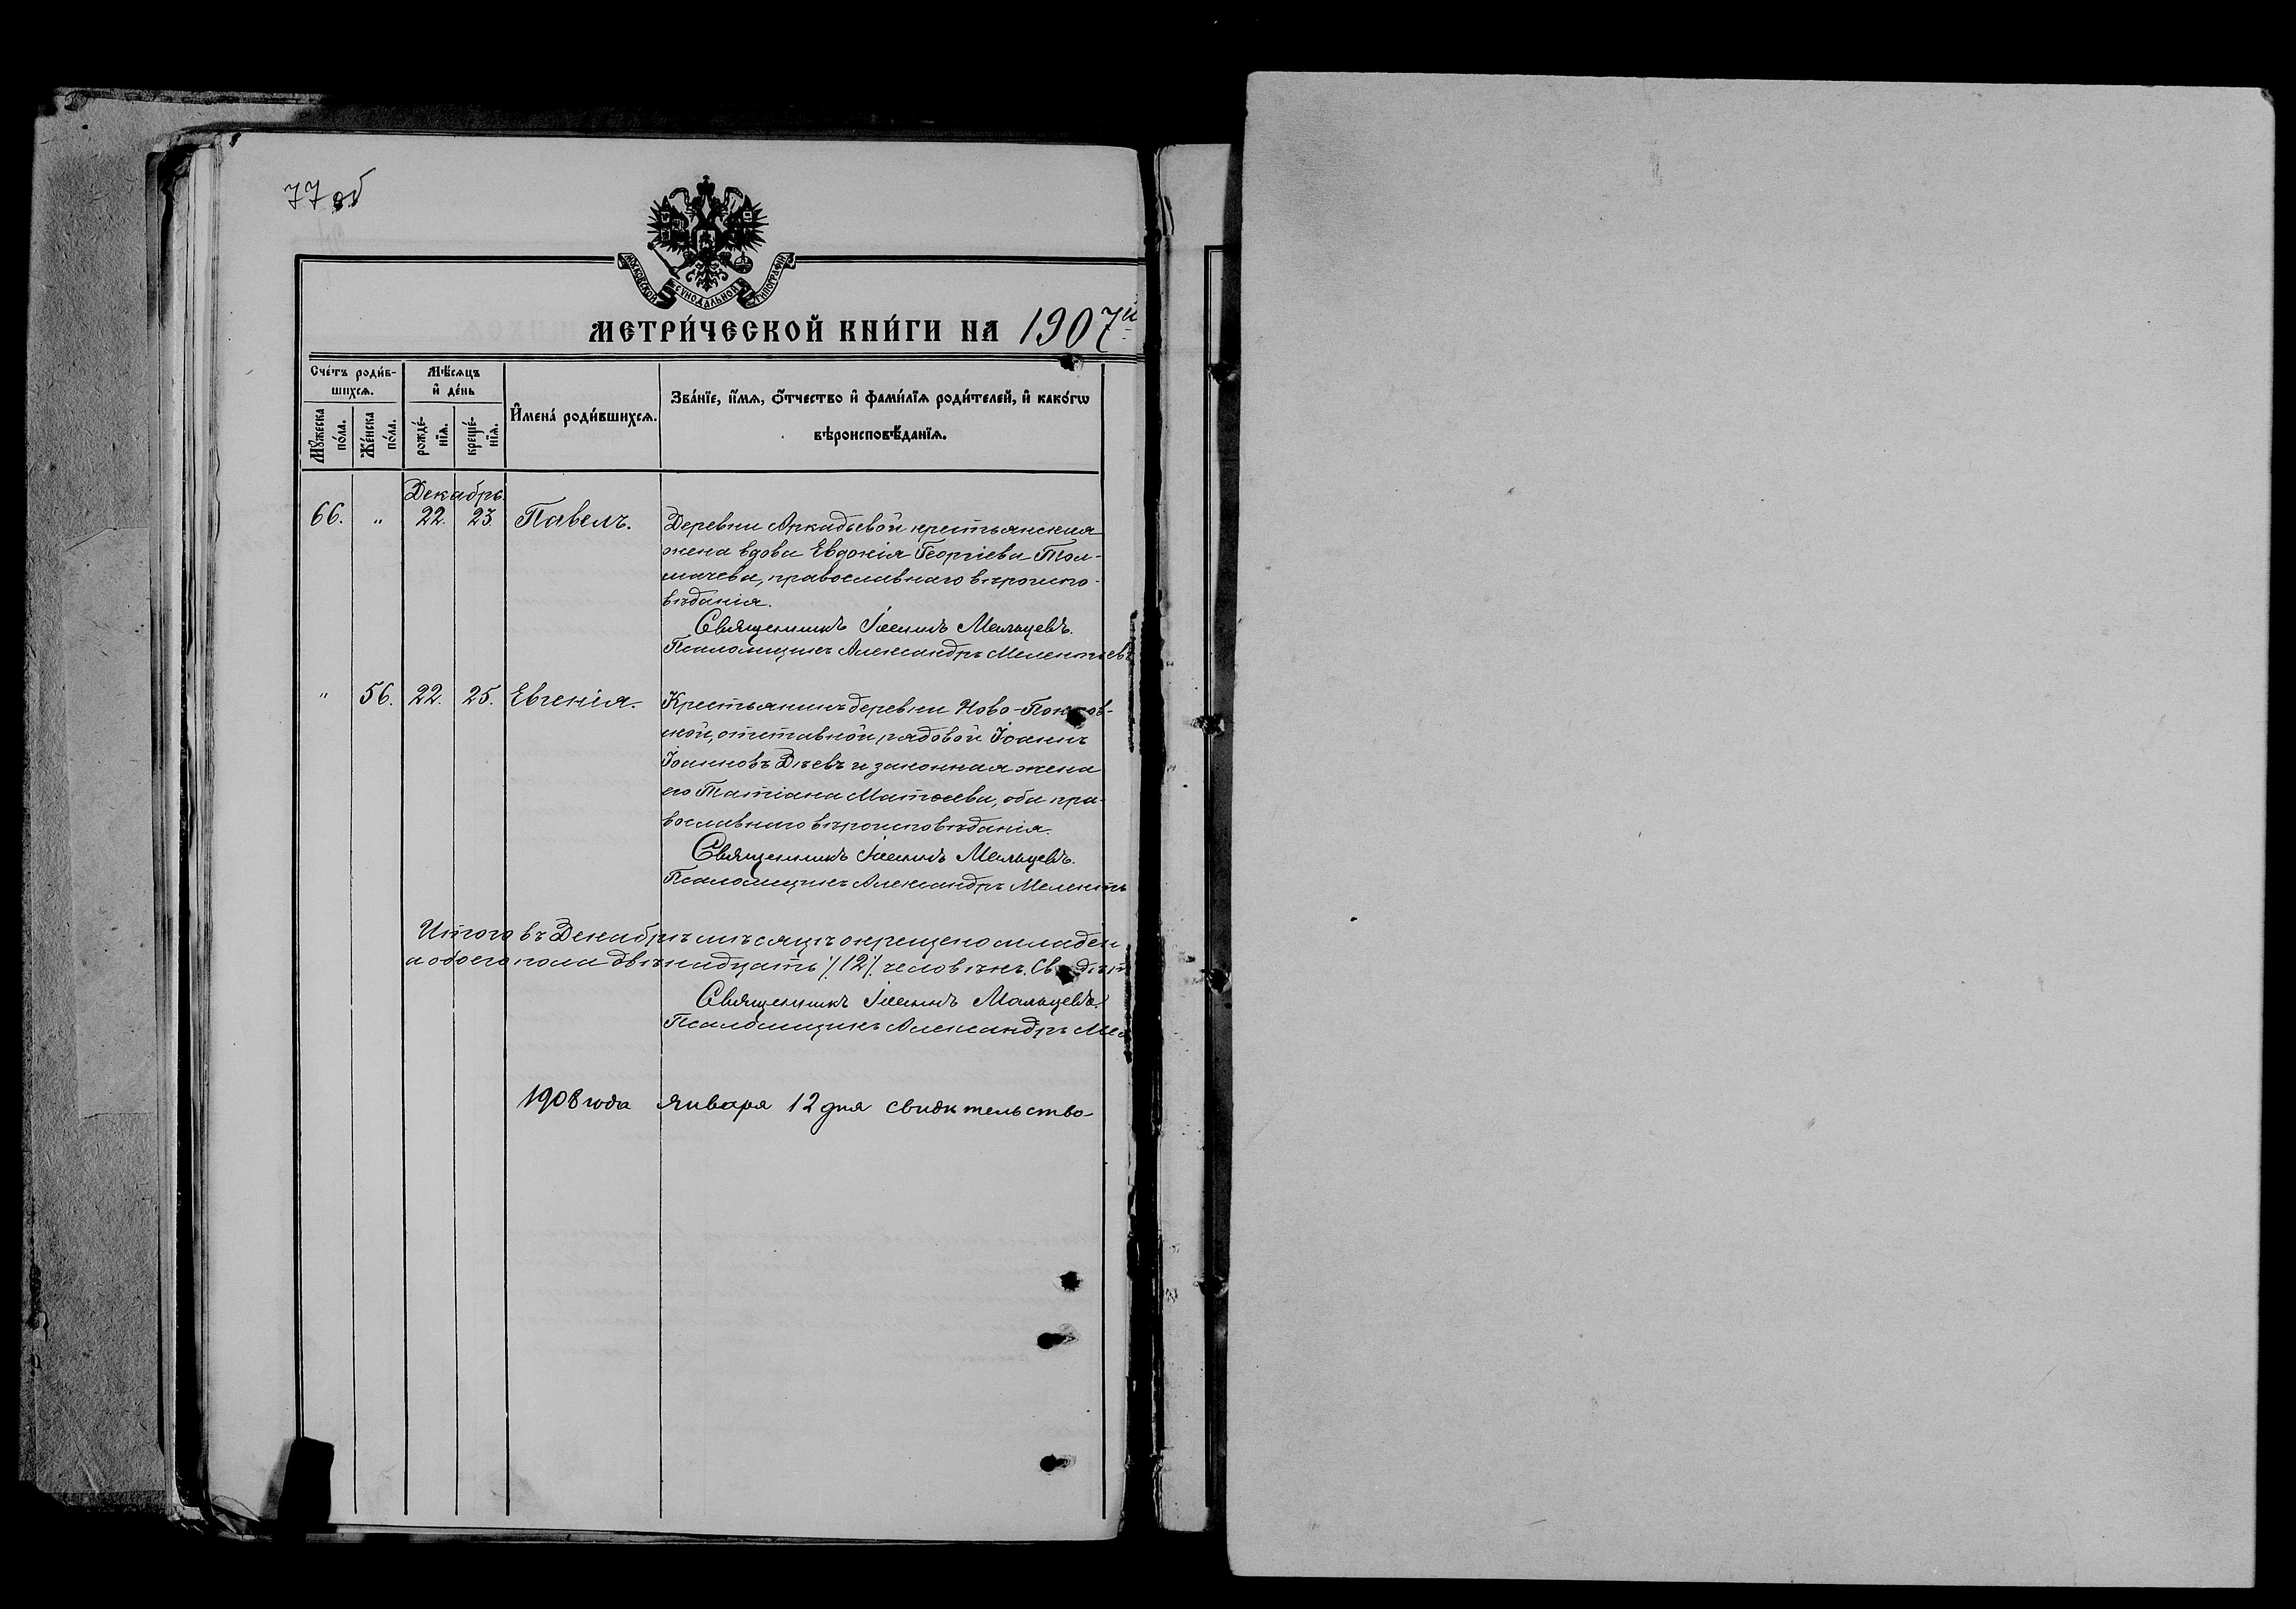 77 об
МОСКОВСКОЙ СѴНОДАЛЬНОЙ ТИПОГРАФІИ
МЕТРИ́ЧЕСКОЙ КНИ́ГИ НА 1907й
Сче́тъ роди́в-
шихсѧ.
Мѣ́сѧцъ
и҆ де́нь
Мꙋ́жеска
по́ла.
Же́нска
по́ла.
рожде́-
нїѧ.
креще́-
нїѧ.
И҆мена́ роди́вшихсѧ.
Зва́нїе, и҆́мѧ, ѻ҆́тчество и҆ фами́лїѧ роди́телей, и҆ како́гѡ
вѣроисповѣ́данїѧ.
Декабрь
66. " 22. 23. Павелъ.
Деревни Аркадьевой крестьянская
жена вдова Евдокія Георгіева Тол-
мачева, православнаго вѣроиспо-
вѣданія.
Священникъ Іоаннъ Мальцевъ.
Псаломщикъ Александръ Мелентьевъ
" 56. 22. 25. Евгенія.
Крестьянинъ деревни Ново-Покров-
ской, отставной рядовой Іоаннъ
Іоанновъ Дѣевъ и законная жена
его Татіана Матѳеева, оба пра-
вославнаго вѣроисповѣданія.
Священникъ Іоаннъ Мальцевъ.
Псаломщикъ Александръ Мелентъ
Итого въ Декабрѣ мѣсяцѣ окрещено младен
а обоего пола двѣнадцать /12/ человѣкъ.
Священникъ Іоаннъ Мальцевъ.
Псаломщикъ Александръ Мел
1908 года января 12 дня свидѣтельство-